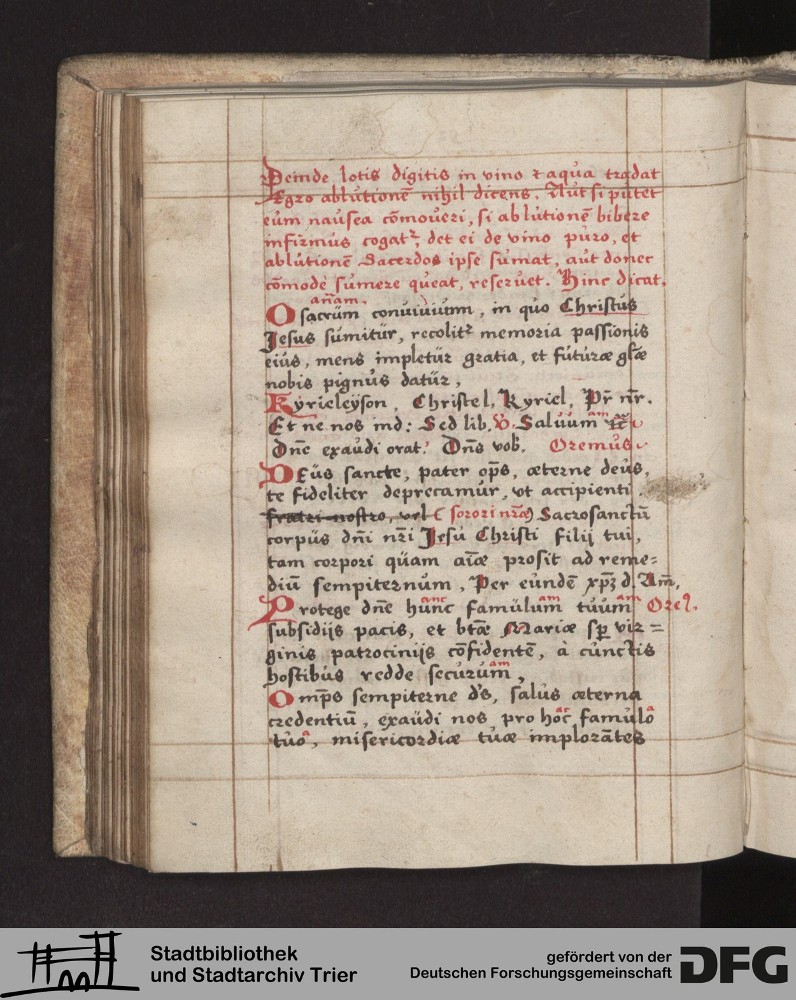 Deinde lotis digitis in vino et aqua tradat
Ægro ablutionē nihil dicens. Aut si putet
eum nausea cōmoveri, si ablutionē bibere
infirmus cogatr, det ei de vino puro, et
ablutionē Sacerdos ipse sumat, aut donec
cōmodè sumere queat, reseruet. Hinc dicat.
añam.
O sacrum conuiuium, in quo Christus
Jesus sumitur, recolitr memoria passionis
eius, mens impletur gratia, et futuræ glæ
nobis pignus datur,
Kyrieleyson, Christel, Kyriel, Pr̄ nr̄.
Et ne nos ind: Sed lib. V. Saluum am
Dn̄e exaudi orat: Dn̄s vob. Oremus
DEus sancte, pater op̄s, æterne deus,
te fideliter deprecamur, vt accipienti
fratri nostro, vel (sorori nr̄æ) Sacrosanctū
corpus dn̄i nr̄i Jesu Christi filij tui,
tam corpori quam aīæ prosit ad reme=
diū sempiternum, Per eundē xp̄ʒ d. Am̄,
Protege dn̄e hunc anc famulum am tuum am Orel.
subsidijs pacis, et btæ Mariæ sp vir=
ginis patrocinijs cōfidentē, à cunctis
hostibus redde securum am,
Omp̄s sempiterne ds, salus æterna
credentiū, exaudi nos, pro hoc ac famulo a
tuo a, misericordiæ tuæ implorātes
Stadtbibliothek
und Stadtarchiv Trier
gefördert von der
Deutschen Forschungsgemeinschaft
DFG